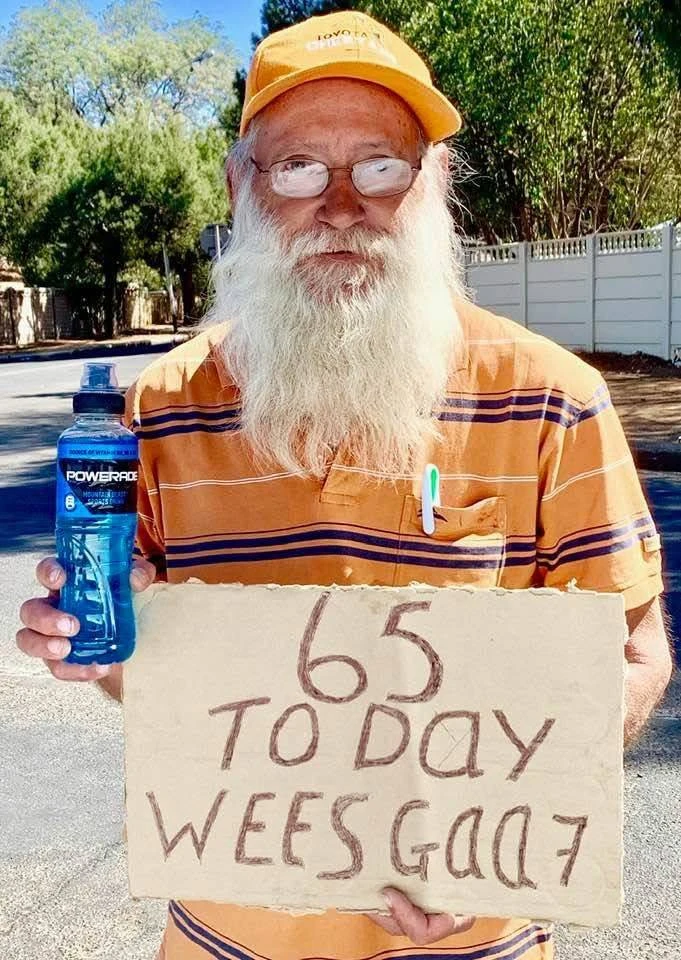 TOYOTA
POWERADE
MOUNTAIN BLAST
SPORTS DRINK
65
TO Day
WEES GaaF